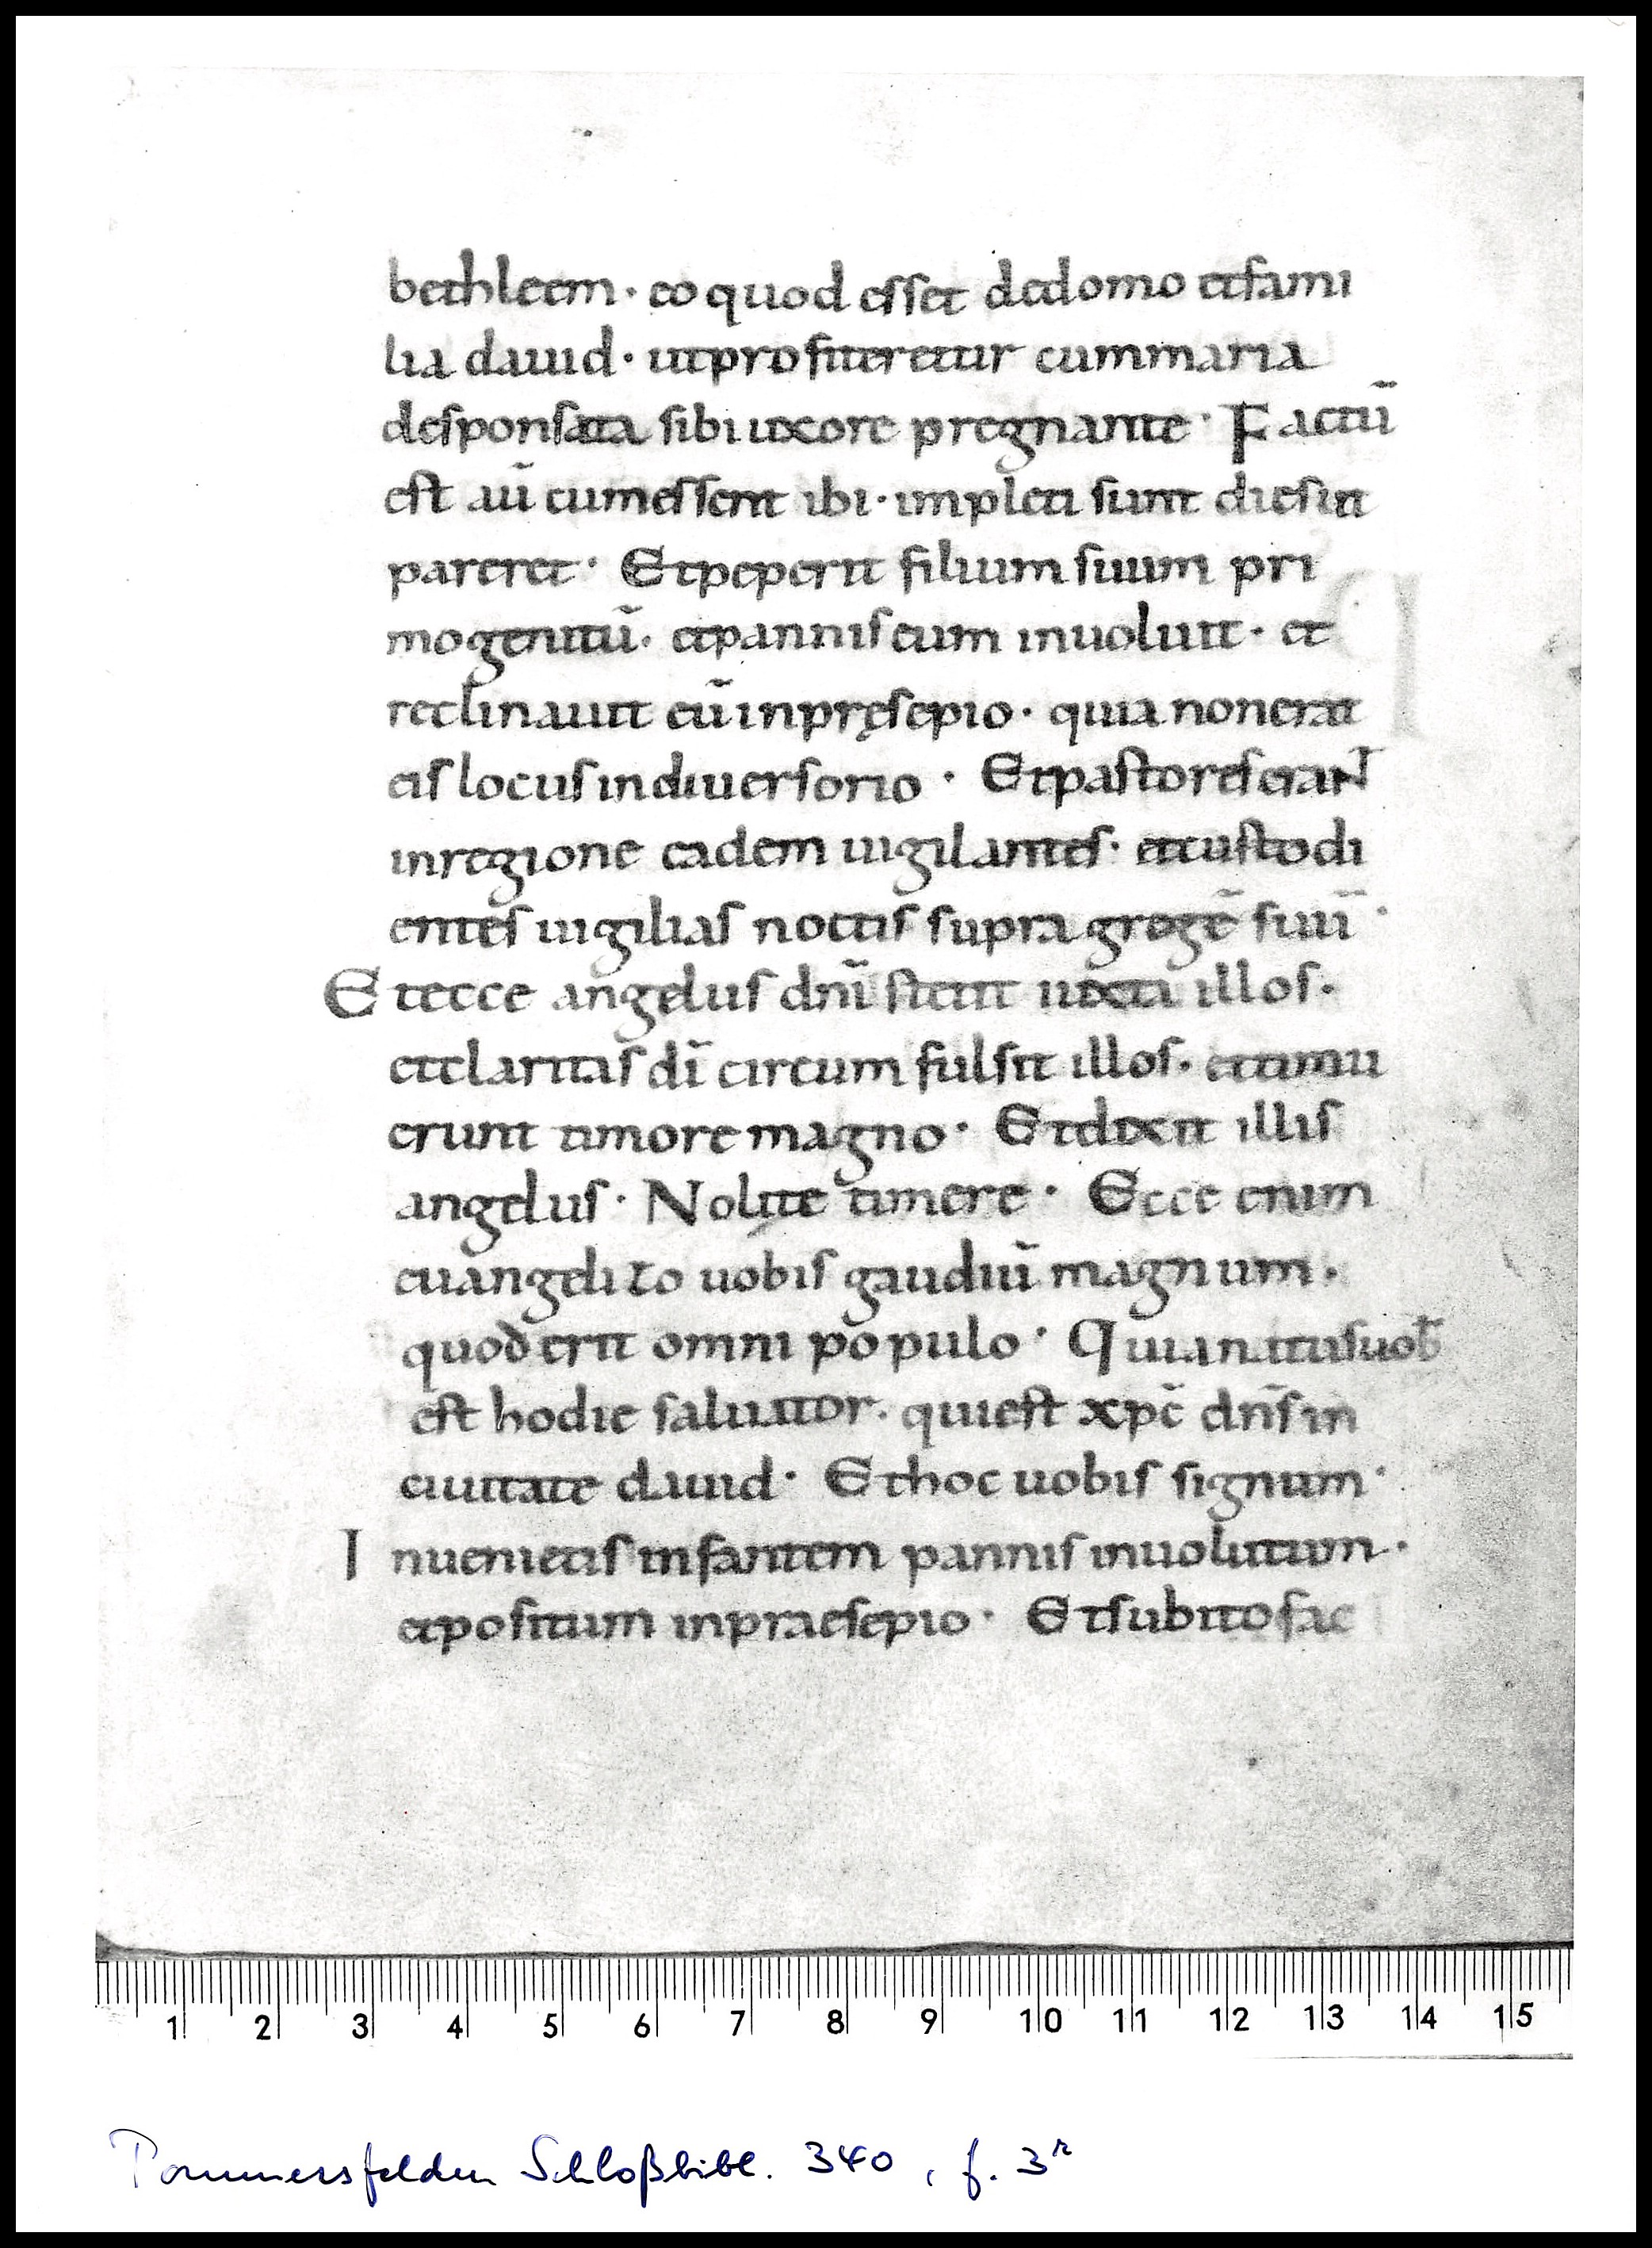 bethleem · eo quod esset dedomo etfami
lia dauid · utprofiteretur cummaria
desponsata sibi uxore pregnante · Factū
est aū cumessent ibi · impleti sunt diesut
pareret · Etpeperit filium suum pri
mogenitū · etpannis eum inuoluit · et
reclinauit eū inpręsepio · quia nonerat
eis locus indiuersorio · Etpastores erant
inregione eadem uigilantes · etcustodi
entes uigilias noctis supra gregē suū ·
Etecce angelus dnī stetit iuxta illos ·
etclaritas dī circum fulsit illos · ettimu
erunt timore magno · Etdixit illis
angelus · Nolite timere · Ecce enim
euangelizo uobis gaudiū magnum ·
quod erit omni populo · Quia natus uob̄
est hodie saluator · quiest xpc̄ dn̄s in
ciuitate dauid · Ethoc uobis signum ·
Inuenietis infantem pannis inuolutum ·
etpositum inpraesepio · Etsubito fac
1 2 3 4 5 6 7 8 9 10 11 12 13 14 15
Pommersfelden Schloßbibl. 340, f. 3r